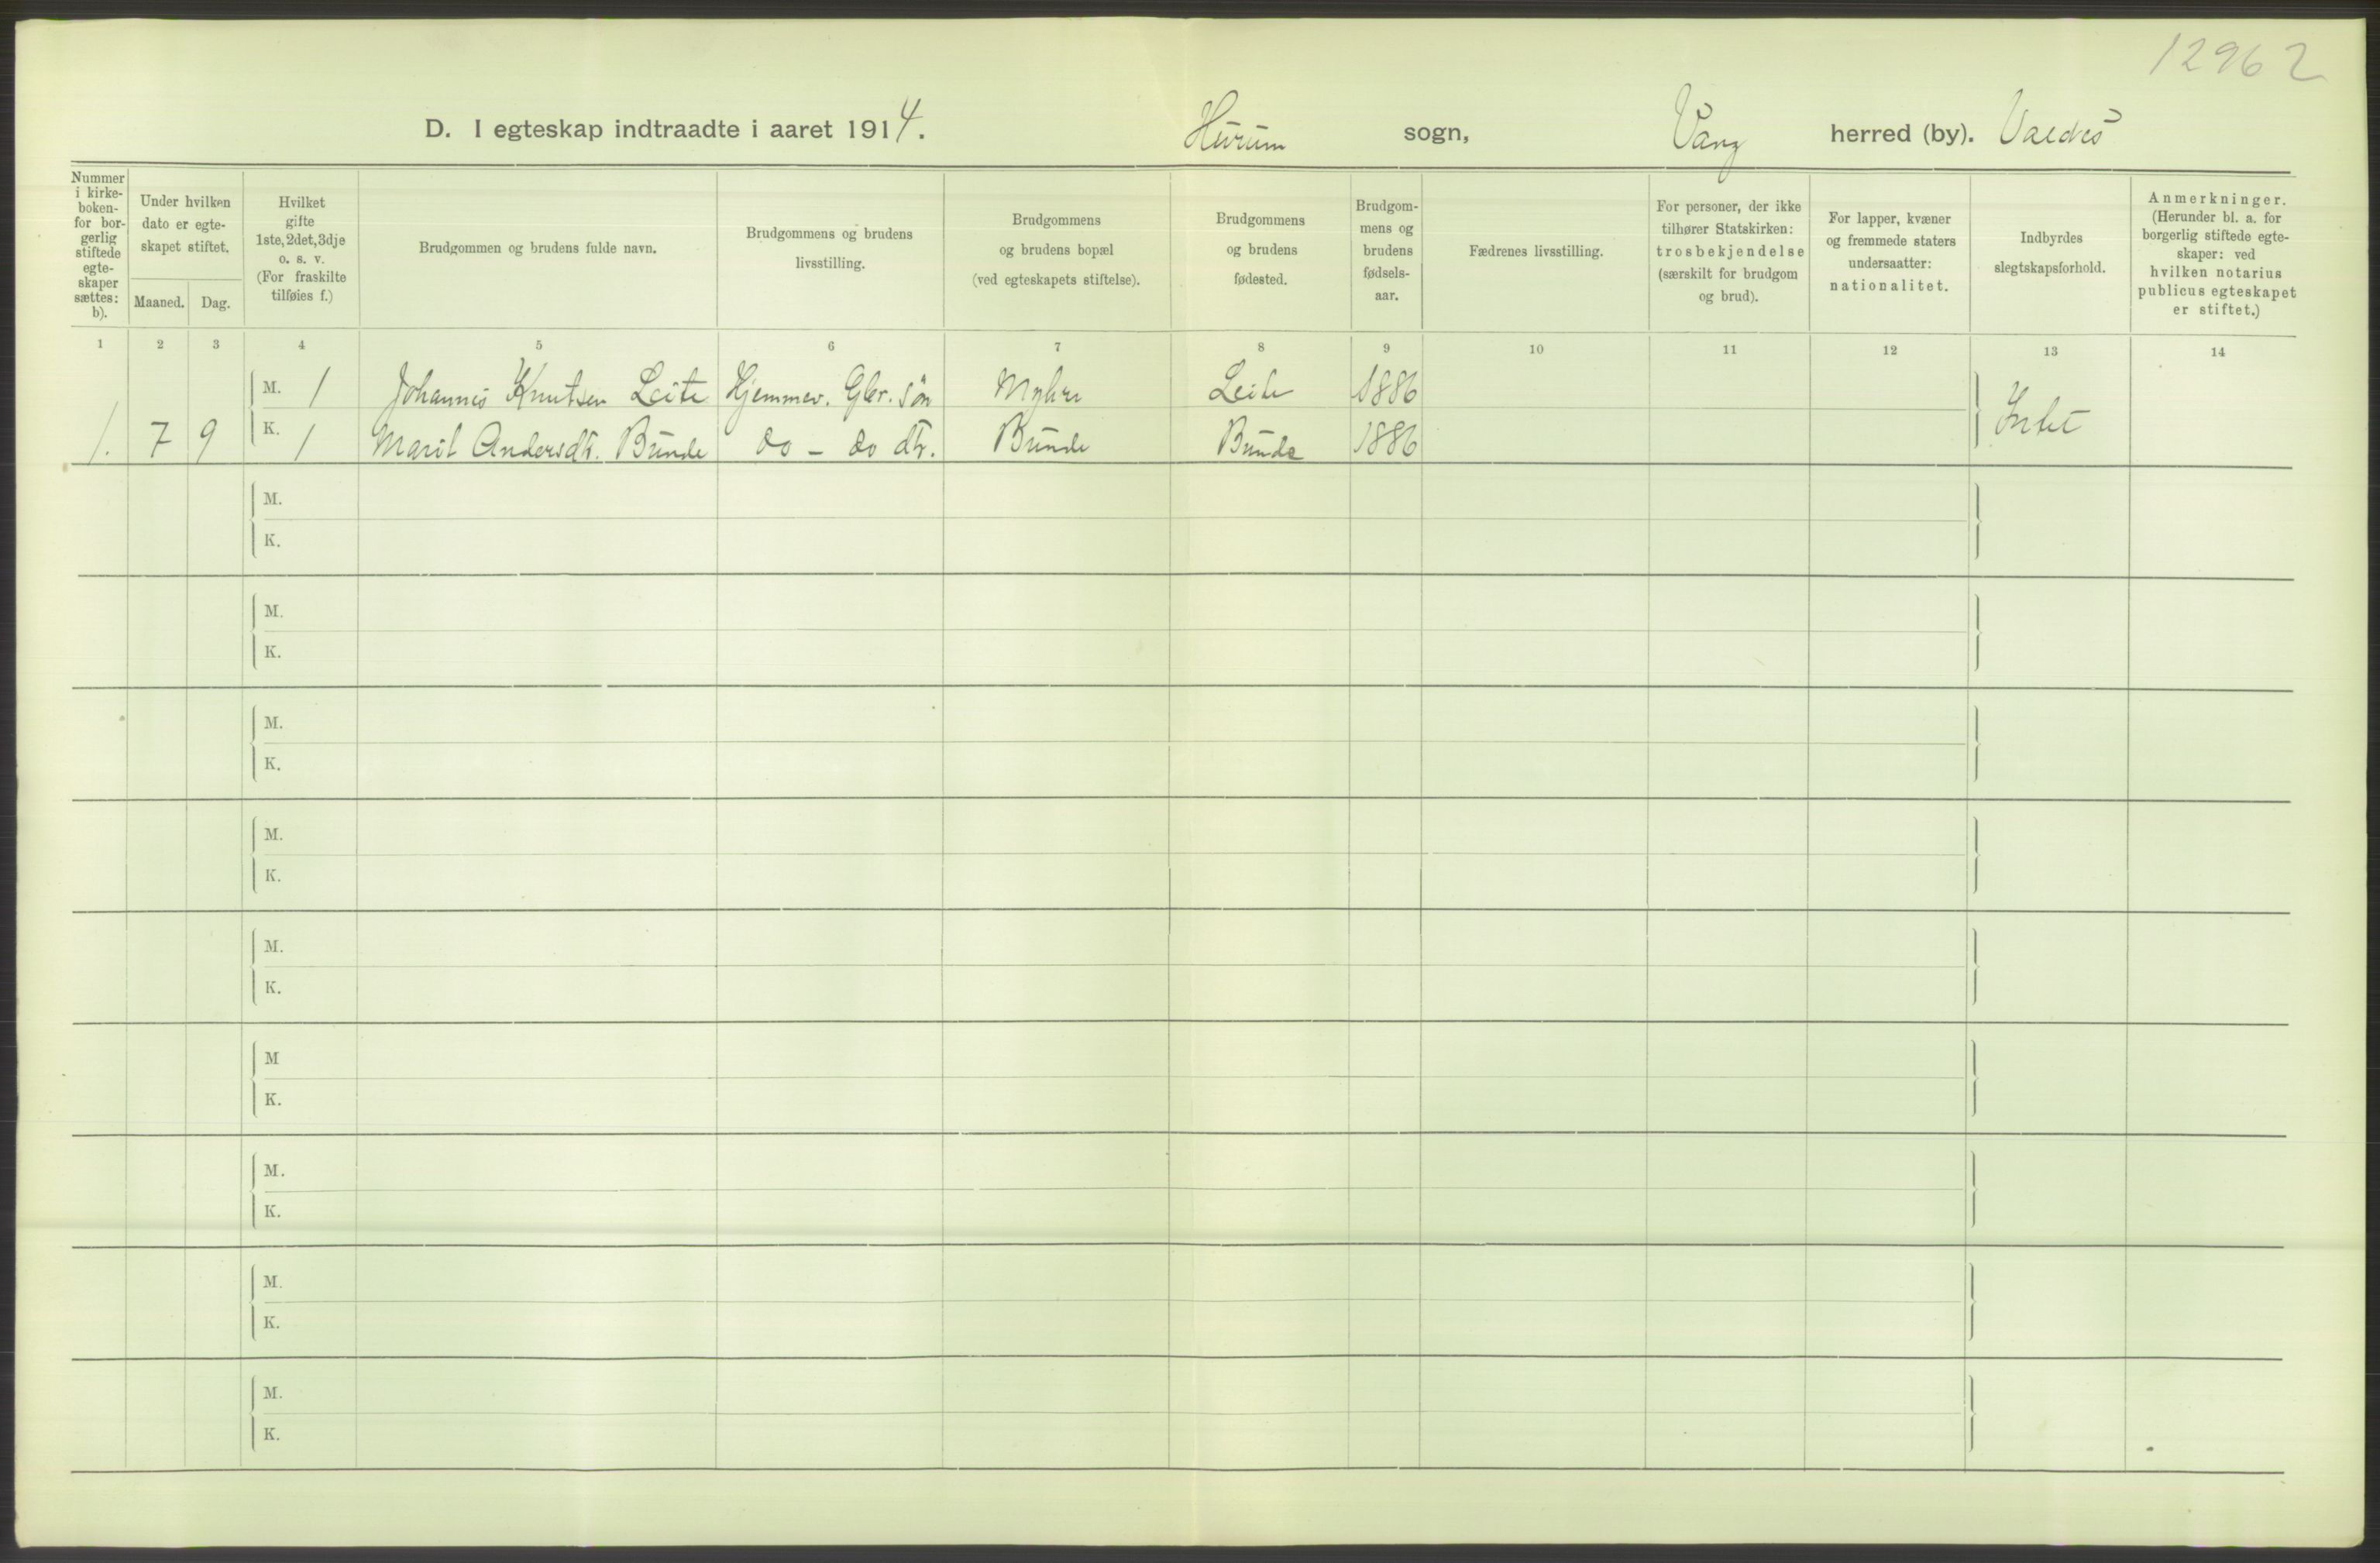 12962
D. I egteskap indtraadte i aaret 1914. Hurum sogn, Vang herred (by). Valdrès
Nummer i kirke-boken- for bor-gerlig stiftede egte-skaper sættes: b).
Under hvilken dato er egte-skapet stiftet.
Maaned. Dag.
Hvilket gifte 1ste, 2det, 3dje o. s. v. (For fraskilte tilføies f.)
Brudgommen og brudens fulde navn.
Brudgommens og brudens livsstilling.
Brudgommens og brudens bopæl (ved egteskapets stiftelse).
Brudgommens og brudens fødested.
Brudgom-mens og brudens fødsels-aar.
Fædrenes livsstilling.
For personer, der ikke tilhører Statskirken: trosbekjendelse (særskilt for brudgom og brud).
For lapper, kvæner og fremmede staters undersaatter: nationalitet.
Indbyrdes slegtskapsforhold.
Anmerkninger. (Herunder bl. a. for borgerlig stiftede egte-skaper: ved hvilken notarius publicus egteskapet er stiftet.)
1 2 3 4 5 6 7 8 9 10 11 12 13 14
M. 1 Johannes Knutsen Leite Hjemmev. Gbr. søn Myhre Leite 1886
1. 7 9 K. 1 Marit Andersdtr. Bunde do - do dtr. Bunde Bunde 1886 Intet
M.
K.
M.
K.
M.
K.
M.
K.
M.
K.
M
K.
M.
K.
M.
K.
M.
K.